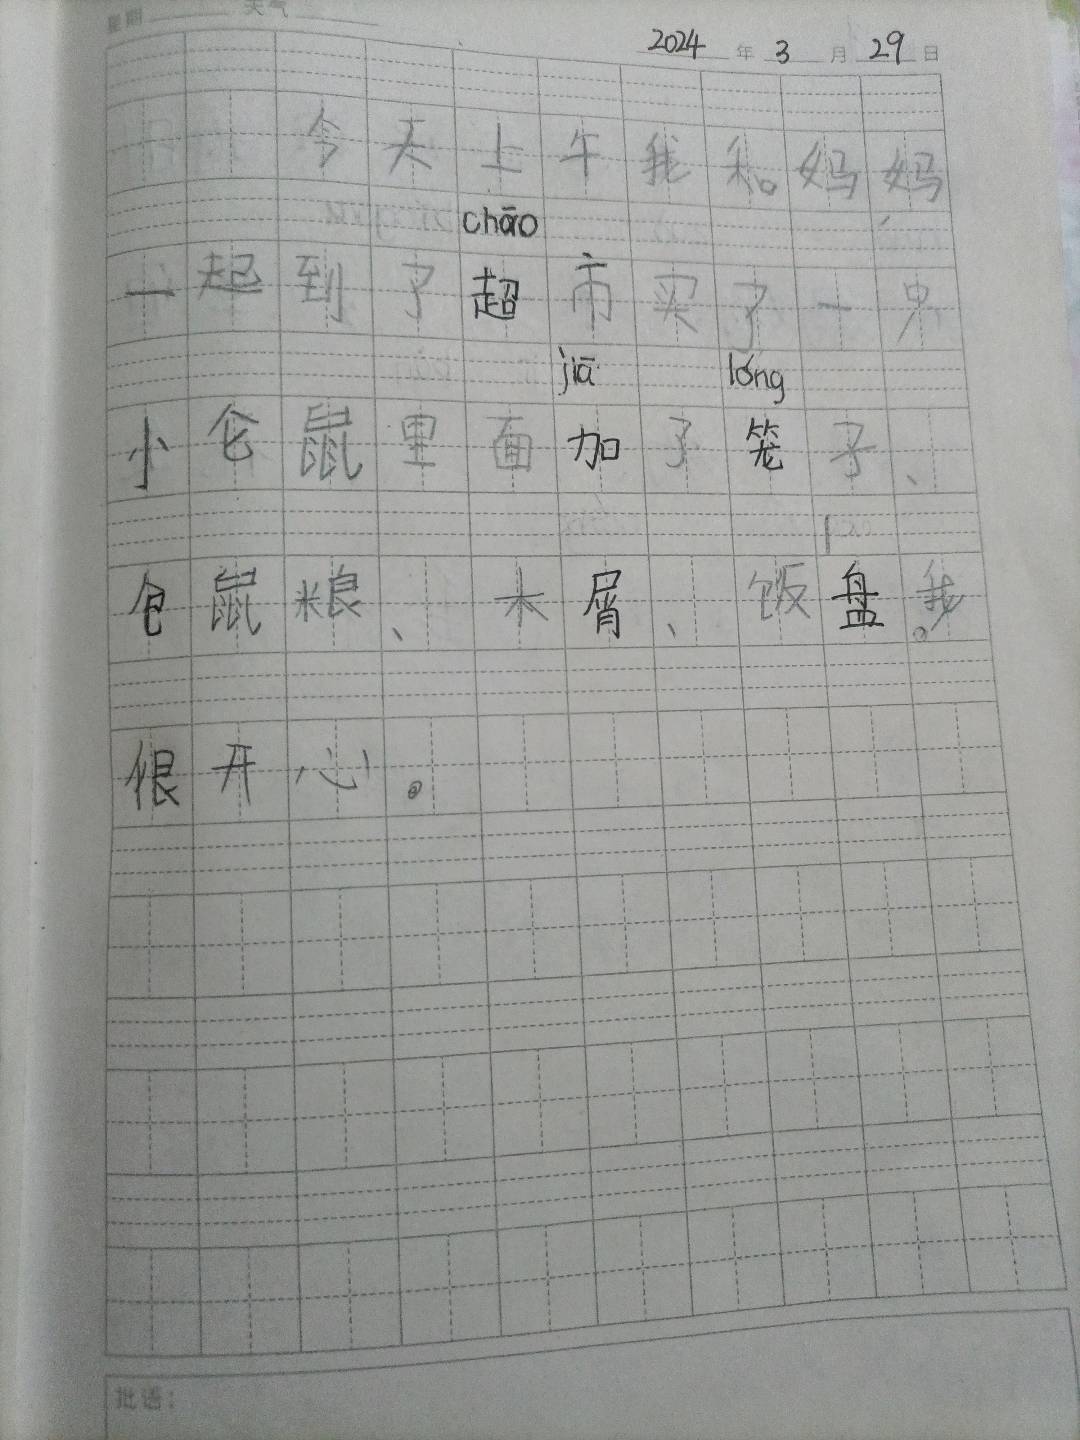 星期 天气
2024 年 3 月 29 日
今天上午我和妈妈
chāo
一起到了超市买了一只
jiā lóng
小仓鼠里面加了笼子、
仓鼠粮、木屑、饭盘。我
很开心。
批语: